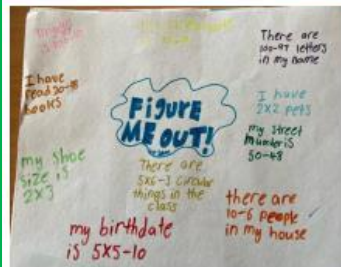 There are
100-97 letters
in my name
I have
read 20-
books
I have
2X2 pets
FIGURE
ME OUT!
my street
number is
50-48
my shoe
size is
2X3
There are
5X6-3 circular
things in the
class
there are
10-6 people
in my house
my birthdate
is 5X5-10